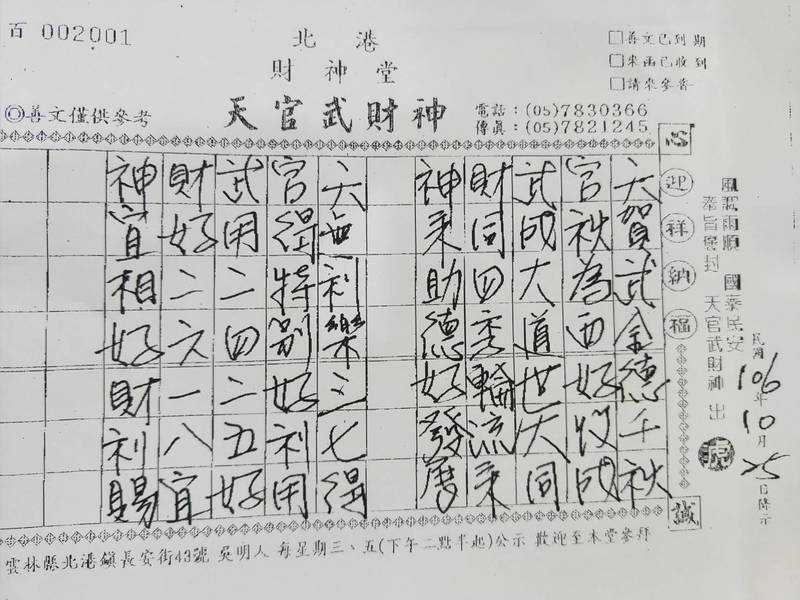 百 002001
北港
財神堂
天官武財神
◎善文僅供參考
電話：(05)7830366
傳真：(05)7821245
□善文已到期
□來函已收到
□請來參香
心
迎祥納福
誠
風調雨順 國泰民安
奉旨 封 天官武財神 出
民國106年10月25日降示
六賀武金德千秋
官秋為西好收成
武成大道世大同
財同四季輪流來
神來助德好發

六無利樂三七得
官得特別好利用
武用二四二五好
財好二六一八宜
神宜相好財利賜
雲林縣北港鎮長安街43號 吳明人 每星期三、五(下午二點半起)公示 歡迎至本堂參拜